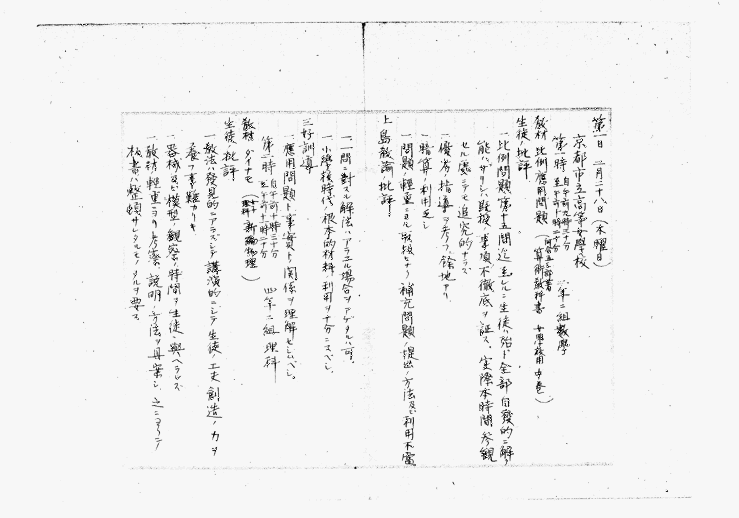 第一日 二月二十八日（木曜日）
京都市立高等女學校
第一時 自午前九時三十分 至午前十時二十分 一年二組 數學
教材 比例應用問題（算術教科書 女學校用 中卷）
生徒ノ批評
一、比例問題第十五問迄 生徒ハ殆ド全部自發的ニ解ク
能ハザリシハ教授ノ事項不徹底ヲ証ス、実際本時間参観
セル處ニテモ追究的ナラズ
一、優劣ノ指導ヲ考フル餘地アリ
一、暗算ノ利用乏シ
一、問題ノ輕重ニヨル取扱ヒナク 補充問題ノ提出ノ方法及ビ利用不審
上島教諭ノ批評
一、一問ニ對スル解法ハアラユル場合ヲアゲタルハ可、
一、小學校時代ノ根本的材料ノ利用ヲ十分ニスベシ、
三好訓導
一、應用問題ト事實トノ関係ヲ理解セシムベシ、
第二時 自午前十時三十分 至午前十一時二十分 四年二組 理科
教材 ダイナモ（理科 新編物理）
生徒ノ批評
一、教法ハ發見的ニアラズシテ講演的ニシテ生徒ノ工夫創造ノ力ヲ
養フ事難カリキ
一、器械及ビ模型ノ觀察ノ時間ヲ生徒ニ與ヘラレズ
一、教材ノ輕重ヨリ考察ノ説明ノ方法ヲ再案シ 之ニヨリテ
板書ハ整頓サレタルモノタルヲ要ス